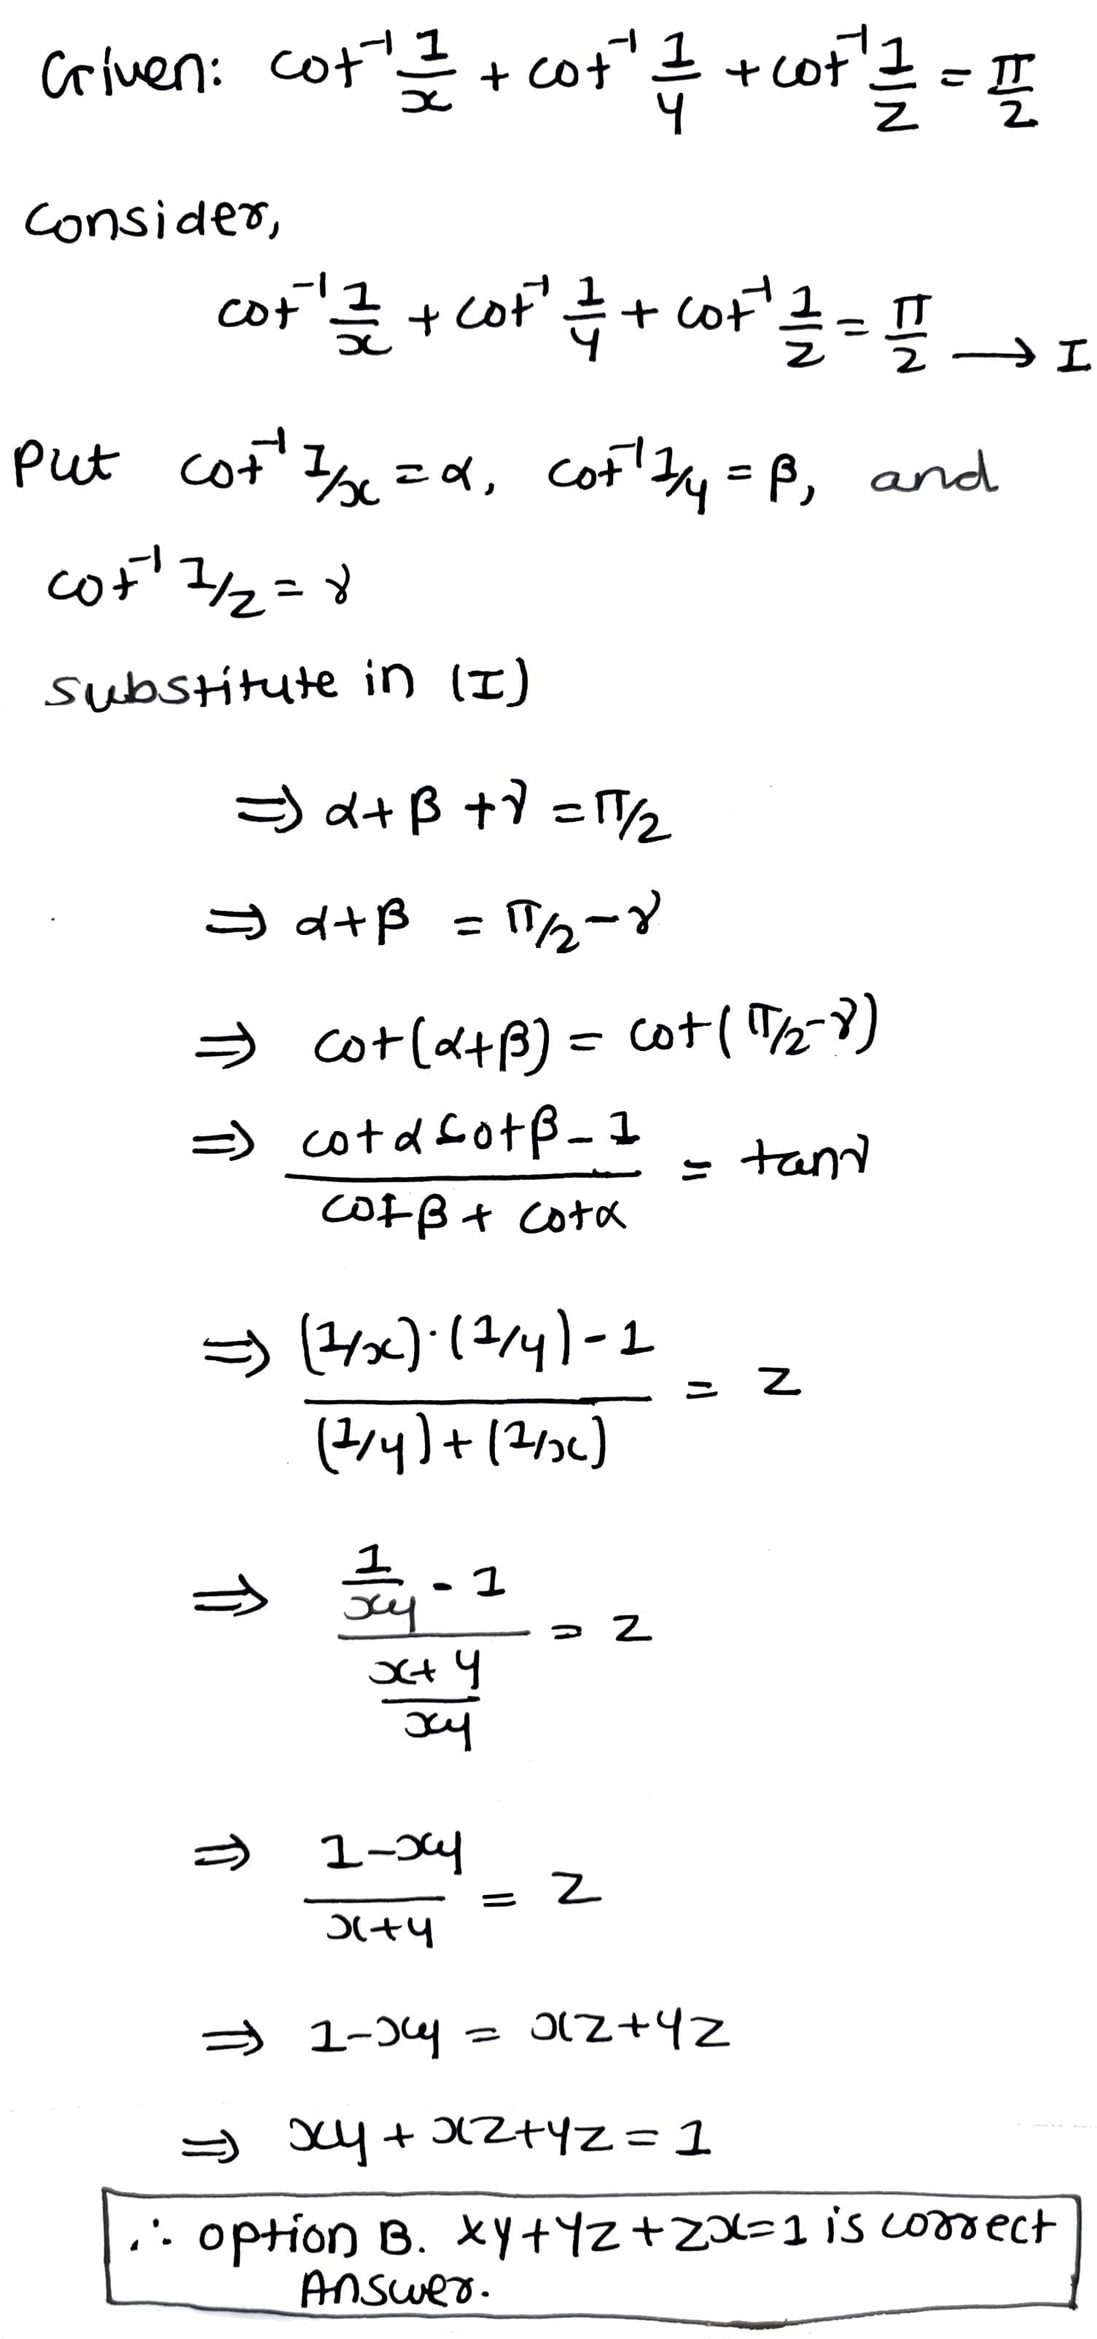 Given: cot⁻¹ 1/x + cot⁻¹ 1/y + cot⁻¹ 1/z = π/2
Consider,
cot⁻¹ 1/x + cot⁻¹ 1/y + cot⁻¹ 1/z = π/2 → I
Put cot⁻¹ 1/x = α, cot⁻¹ 1/y = β, and
cot⁻¹ 1/z = γ
substitute in (I)
⇒ α + β + γ = π/2
⇒ α + β = π/2 - γ
⇒ cot(α+β) = cot(π/2-γ)
⇒ (cotα cotβ - 1)/(cotβ + cotα) = tanγ
⇒ ((1/x)·(1/y) - 1)/((1/y)+(1/x)) = z
⇒ (1/xy - 1)/((x+y)/xy) = z
⇒ (1-xy)/(x+y) = z
⇒ 1-xy = xz+yz
⇒ xy + xz+yz = 1
∴ option B. xy+yz+zx=1 is correct
Answer.